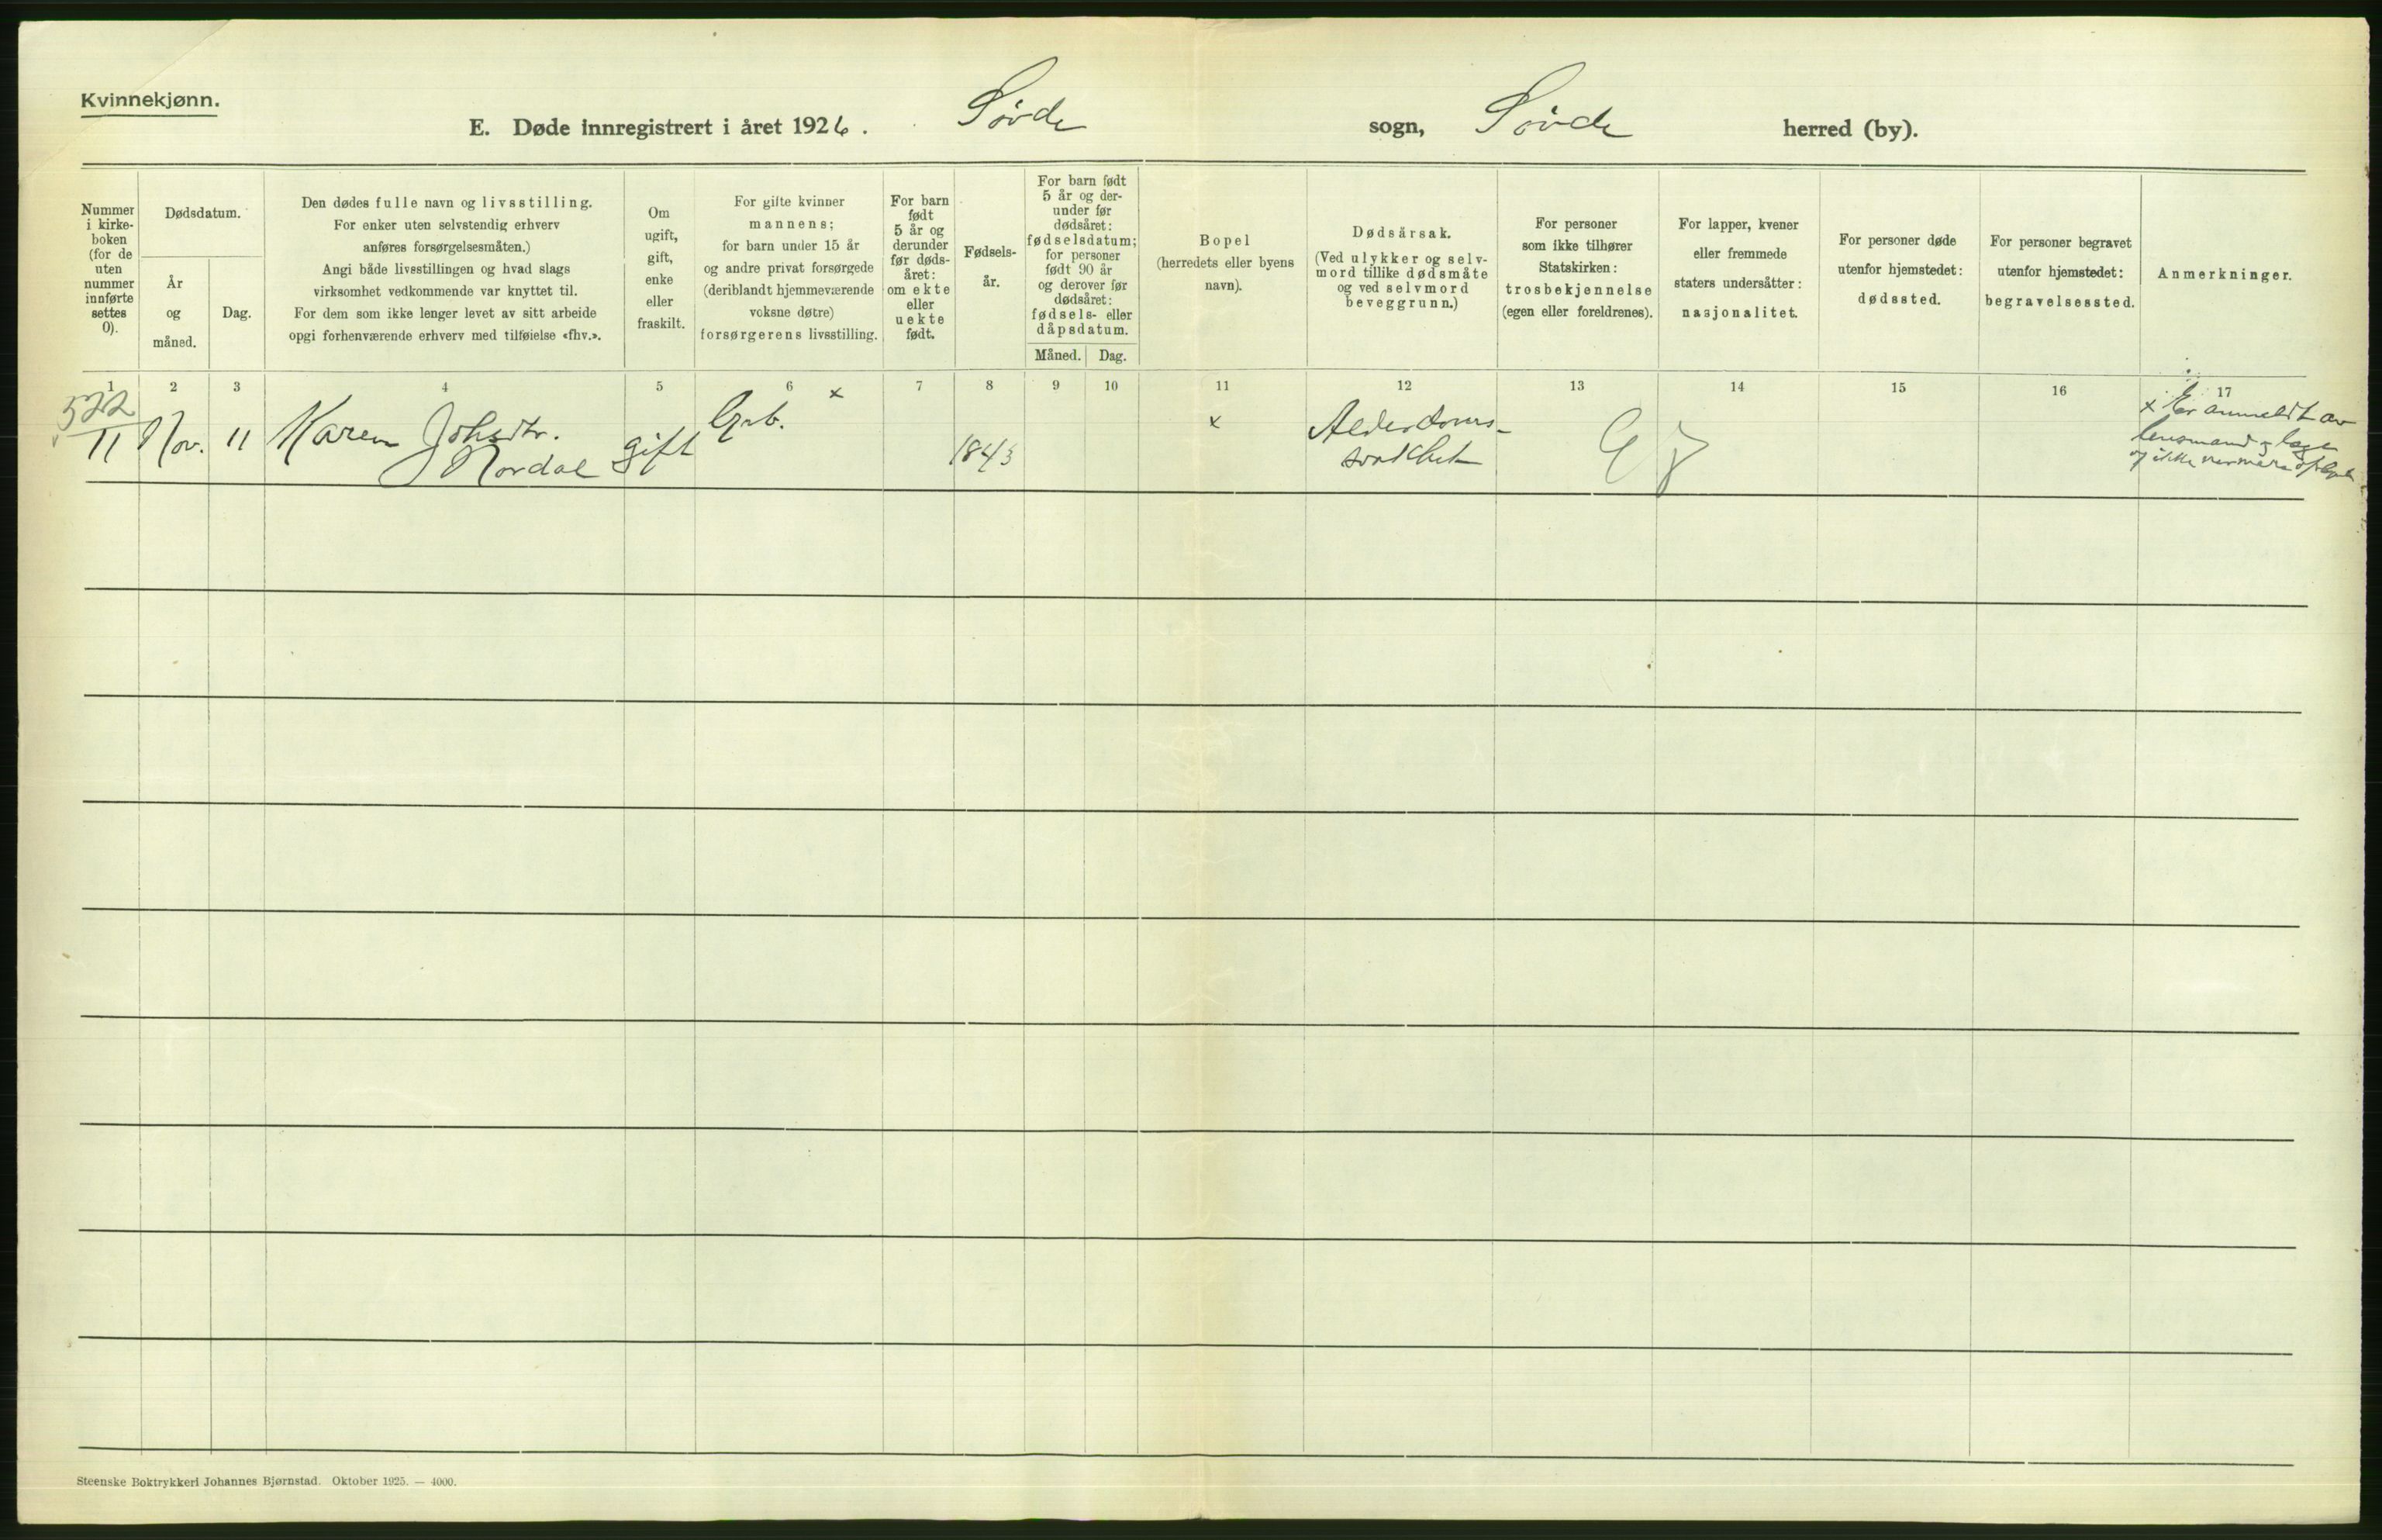 Kvinnekjønn.
E. Døde innregistrert i året 1926. Søvde sogn, Søvde herred (by).
Nummer
i kirke-
boken
(for de
uten
nummer
innførte
settes
0).
Dødsdatum.
År
og
måned.
Dag.
Den dødes fulle navn og livsstilling.
For enker uten selvstendig erhverv
anføres forsørgelsesmåten.)
Angi både livsstillingen og hvad slags
virksomhet vedkommende var knyttet til.
For dem som ikke lenger levet av sitt arbeide
opgi forhenværende erhverv med tilføielse «fhv.».
Om
ugift,
gift,
enke
eller
fraskilt.
For gifte kvinner
mannens;
for barn under 15 år
og andre privat forsørgede
(deriblandt hjemmeværende
voksne døtre)
forsørgerens livsstilling.
For barn
født
5 år og
derunder
før døds-
året:
om ekte
eller
uekte
født.
Fødsels-
år.
For barn født
5 år og der-
under før
dødsåret:
fødselsdatum;
for personer
født 90 år
og derover før
dødsåret:
fødsels- eller
dåpsdatum.
Måned. Dag.
Bopel
(herredets eller byens
navn).
Dødsårsak.
(Ved ulykker og selv-
mord tillike dødsmåte
og ved selvmord
beveggrunn.)
For personer
som ikke tilhører
Statskirken:
trosbekjennelse
(egen eller foreldrenes).
For lapper, kvener
eller fremmede
staters undersåtter:
nasjonalitet.
For personer døde
utenfor hjemstedet:
dødssted.
For personer begravet
utenfor hjemstedet:
begravelsessted.
Anmerkninger.
1 2 3 4 5 6 7 8 9 10 11 12 13 14 15 16 17
522
11 Nov. 11 Karen Johsdtr.
Nordal
gift
Grb. x
1843
x
Alderdoms-
svakhet
x Er anmeldt av
lensmand og læge
og ikke nærmere
Steenske Boktrykkeri Johannes Bjørnstad. Oktober 1925. — 4000.